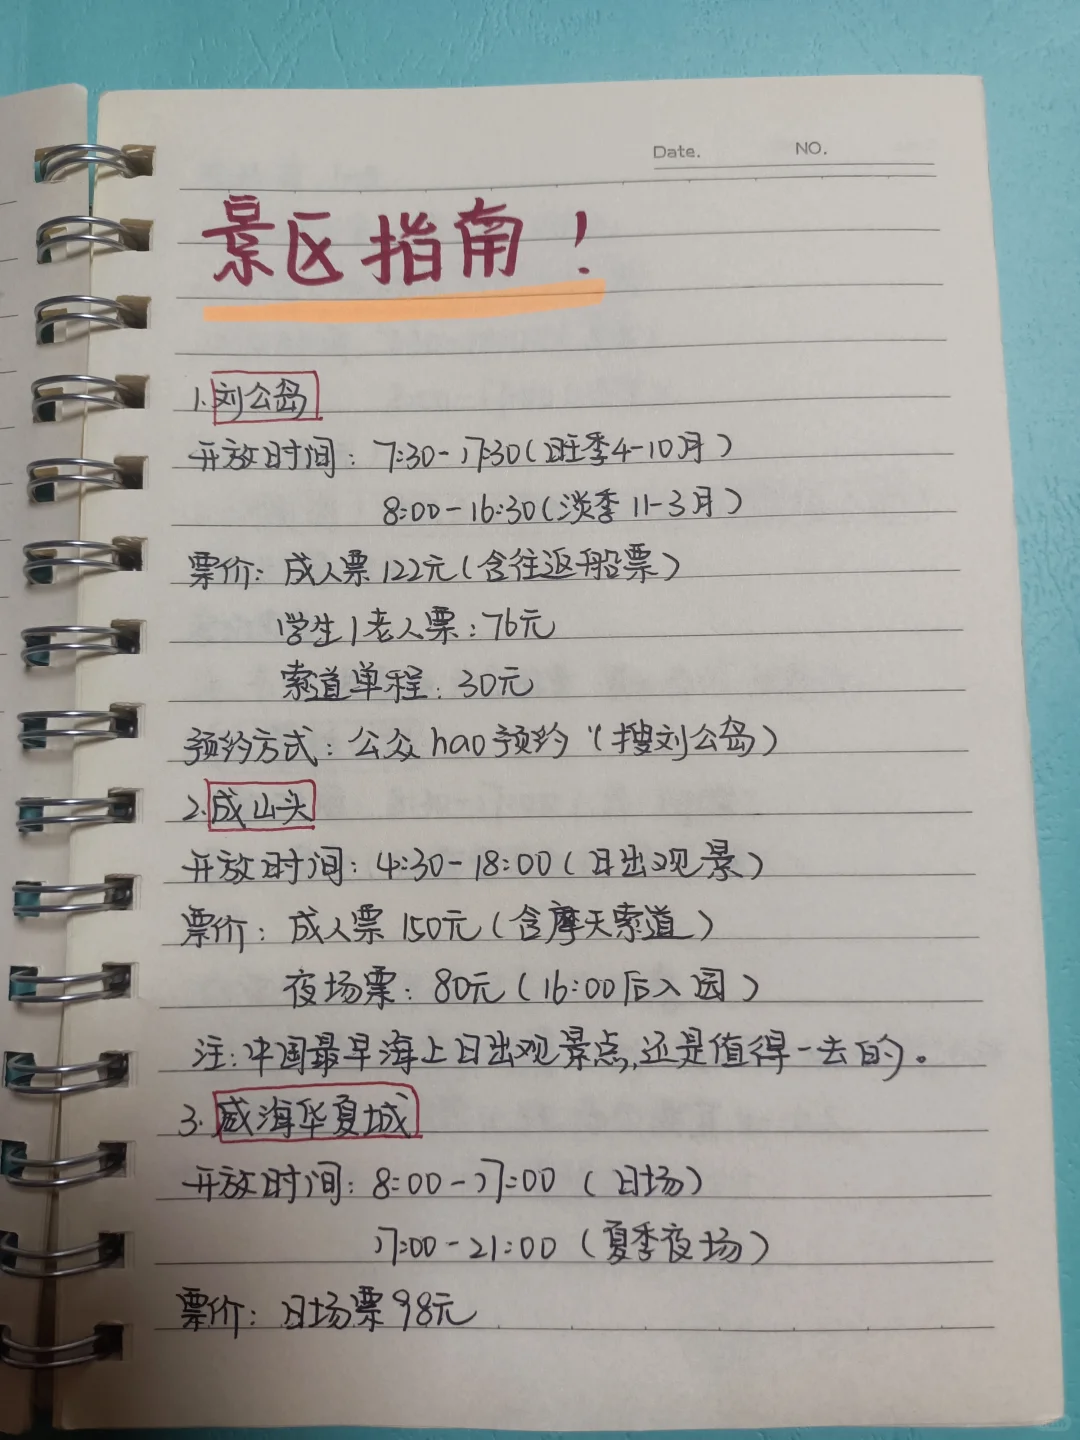 Date.
NO.
景区指南！
1.刘公岛
开放时间：7:30-17:30(旺季4-10月)
8:00-16:30(淡季11-3月)
票价：成人票122元(含往返船票)
学生/老人票：76元
索道单程：30元
预约方式：公众hao预约“(搜刘公岛)
2.成山头
开放时间：4:30-18:00(日出观景)
票价：成人票150元(含摩天索道)
夜场票：80元(16:00后入园)
注：中国最早海上日出观景点,还是值得一去的。
3.威海华夏城
开放时间：8:00-17:00 (日场)
17:00-21:00 (夏季夜场)
票价：日场票98元